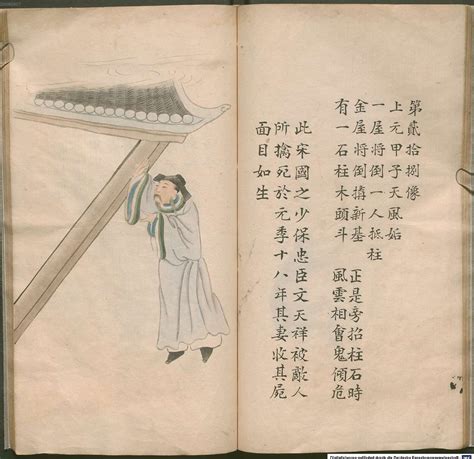 第貳拾捌像
上元甲子天風姤
一屋將倒一人抵柱
金屋將倒搆新基 正是旁招柱石時
有一石柱木頭斗 風雲相會鬼傾危
此宋國之少保忠臣文天祥被敵人
所擒死於元季十八年其妻收其屍
面目如生